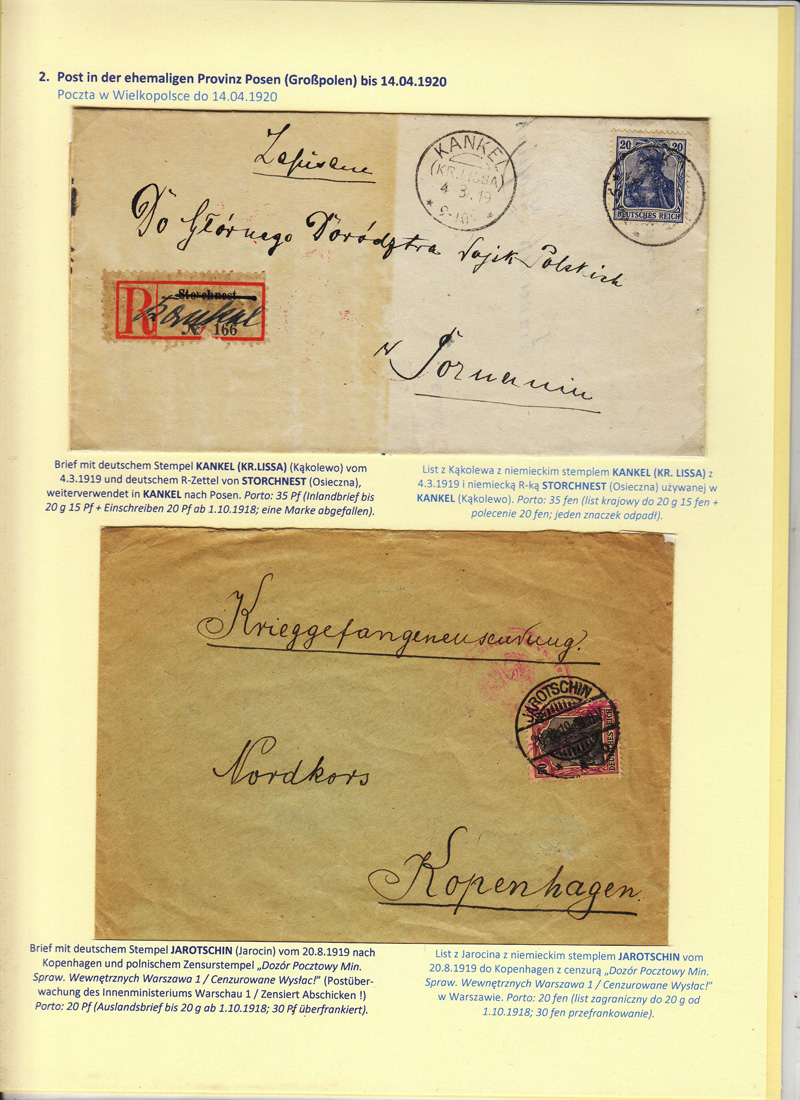 2. Post in der ehemaligen Provinz Posen (Großpolen) bis 14.04.1920
Poczta w Wielkopolsce do 14.04.1920
Zapisane
KANKEL
(KR. LISSA)
4 3. 19
9-10
20 20
DEUTSCHES REICH
Do Głównego Dowództwa Wojsk Polskich
R
Storchnest
Kankel
№ 166
w Poznaniu
Brief mit deutschem Stempel KANKEL (KR.LISSA) (Kąkolewo) vom
4.3.1919 und deutschem R-Zettel von STORCHNEST (Osieczna),
weiterverwendet in KANKEL nach Posen. Porto: 35 Pf (Inlandbrief bis
20 g 15 Pf + Einschreiben 20 Pf ab 1.10.1918; eine Marke abgefallen).
List z Kąkolewa z niemieckim stemplem KANKEL (KR. LISSA) z
4.3.1919 i niemiecką R-ką STORCHNEST (Osieczna) używanej w
KANKEL (Kąkolewo). Porto: 35 fen (list krajowy do 20 g 15 fen +
polecenie 20 fen; jeden znaczek odpadł).
Krieggefangenensendung.
JAROTSCHIN
DEUTSCHES REICH
Nordkors
Kopenhagen.
Brief mit deutschem Stempel JAROTSCHIN (Jarocin) vom 20.8.1919 nach
Kopenhagen und polnischem Zensurstempel „Dozór Pocztowy Min.
Spraw. Wewnętrznych Warszawa 1 / Cenzurowane Wysłac!" (Postüber-
wachung des Innenministeriums Warschau 1 / Zensiert Abschicken !)
Porto: 20 Pf (Auslandsbrief bis 20 g ab 1.10.1918; 30 Pf überfrankiert).
List z Jarocina z niemieckim stemplem JAROTSCHIN vom
20.8.1919 do Kopenhagen z cenzurą „Dozór Pocztowy Min.
Spraw. Wewnętrznych Warszawa 1 / Cenzurowane Wysłac!"
w Warszawie. Porto: 20 fen (list zagraniczny do 20 g od
1.10.1918; 30 fen przefrankowanie).